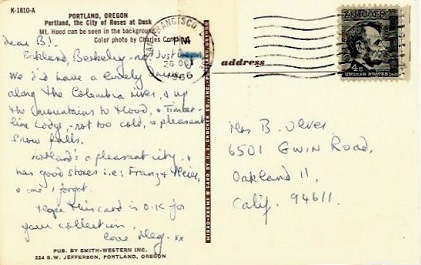 K-1810-A
PORTLAND, OREGON
Portland, the City of Roses at Dusk
Mt. Hood can be seen in the background
Color photo by Charles
Dear B!.
Oakland, Berkeley - not
We did have a lovely drive
along the Columbia river, & up
the mountains to Hood, & Timber-
line Lodge, - not too cold, & pleasant
snow falls.
Portland's a pleasant city, &
has good stores i.e: Franz &
& one I forget.
Hope this card is O.K for
your collection.
Love Meg. xx
PUB. BY SMITH-WESTERN INC.
224 S.W. JEFFERSON, PORTLAND, OREGON
SAN FRANCISCO
PM
1966
address
4¢
UNITED STATES
Mrs B. Ulver
6501 Gwin Road,
Oakland 11,
Calif. 94611.